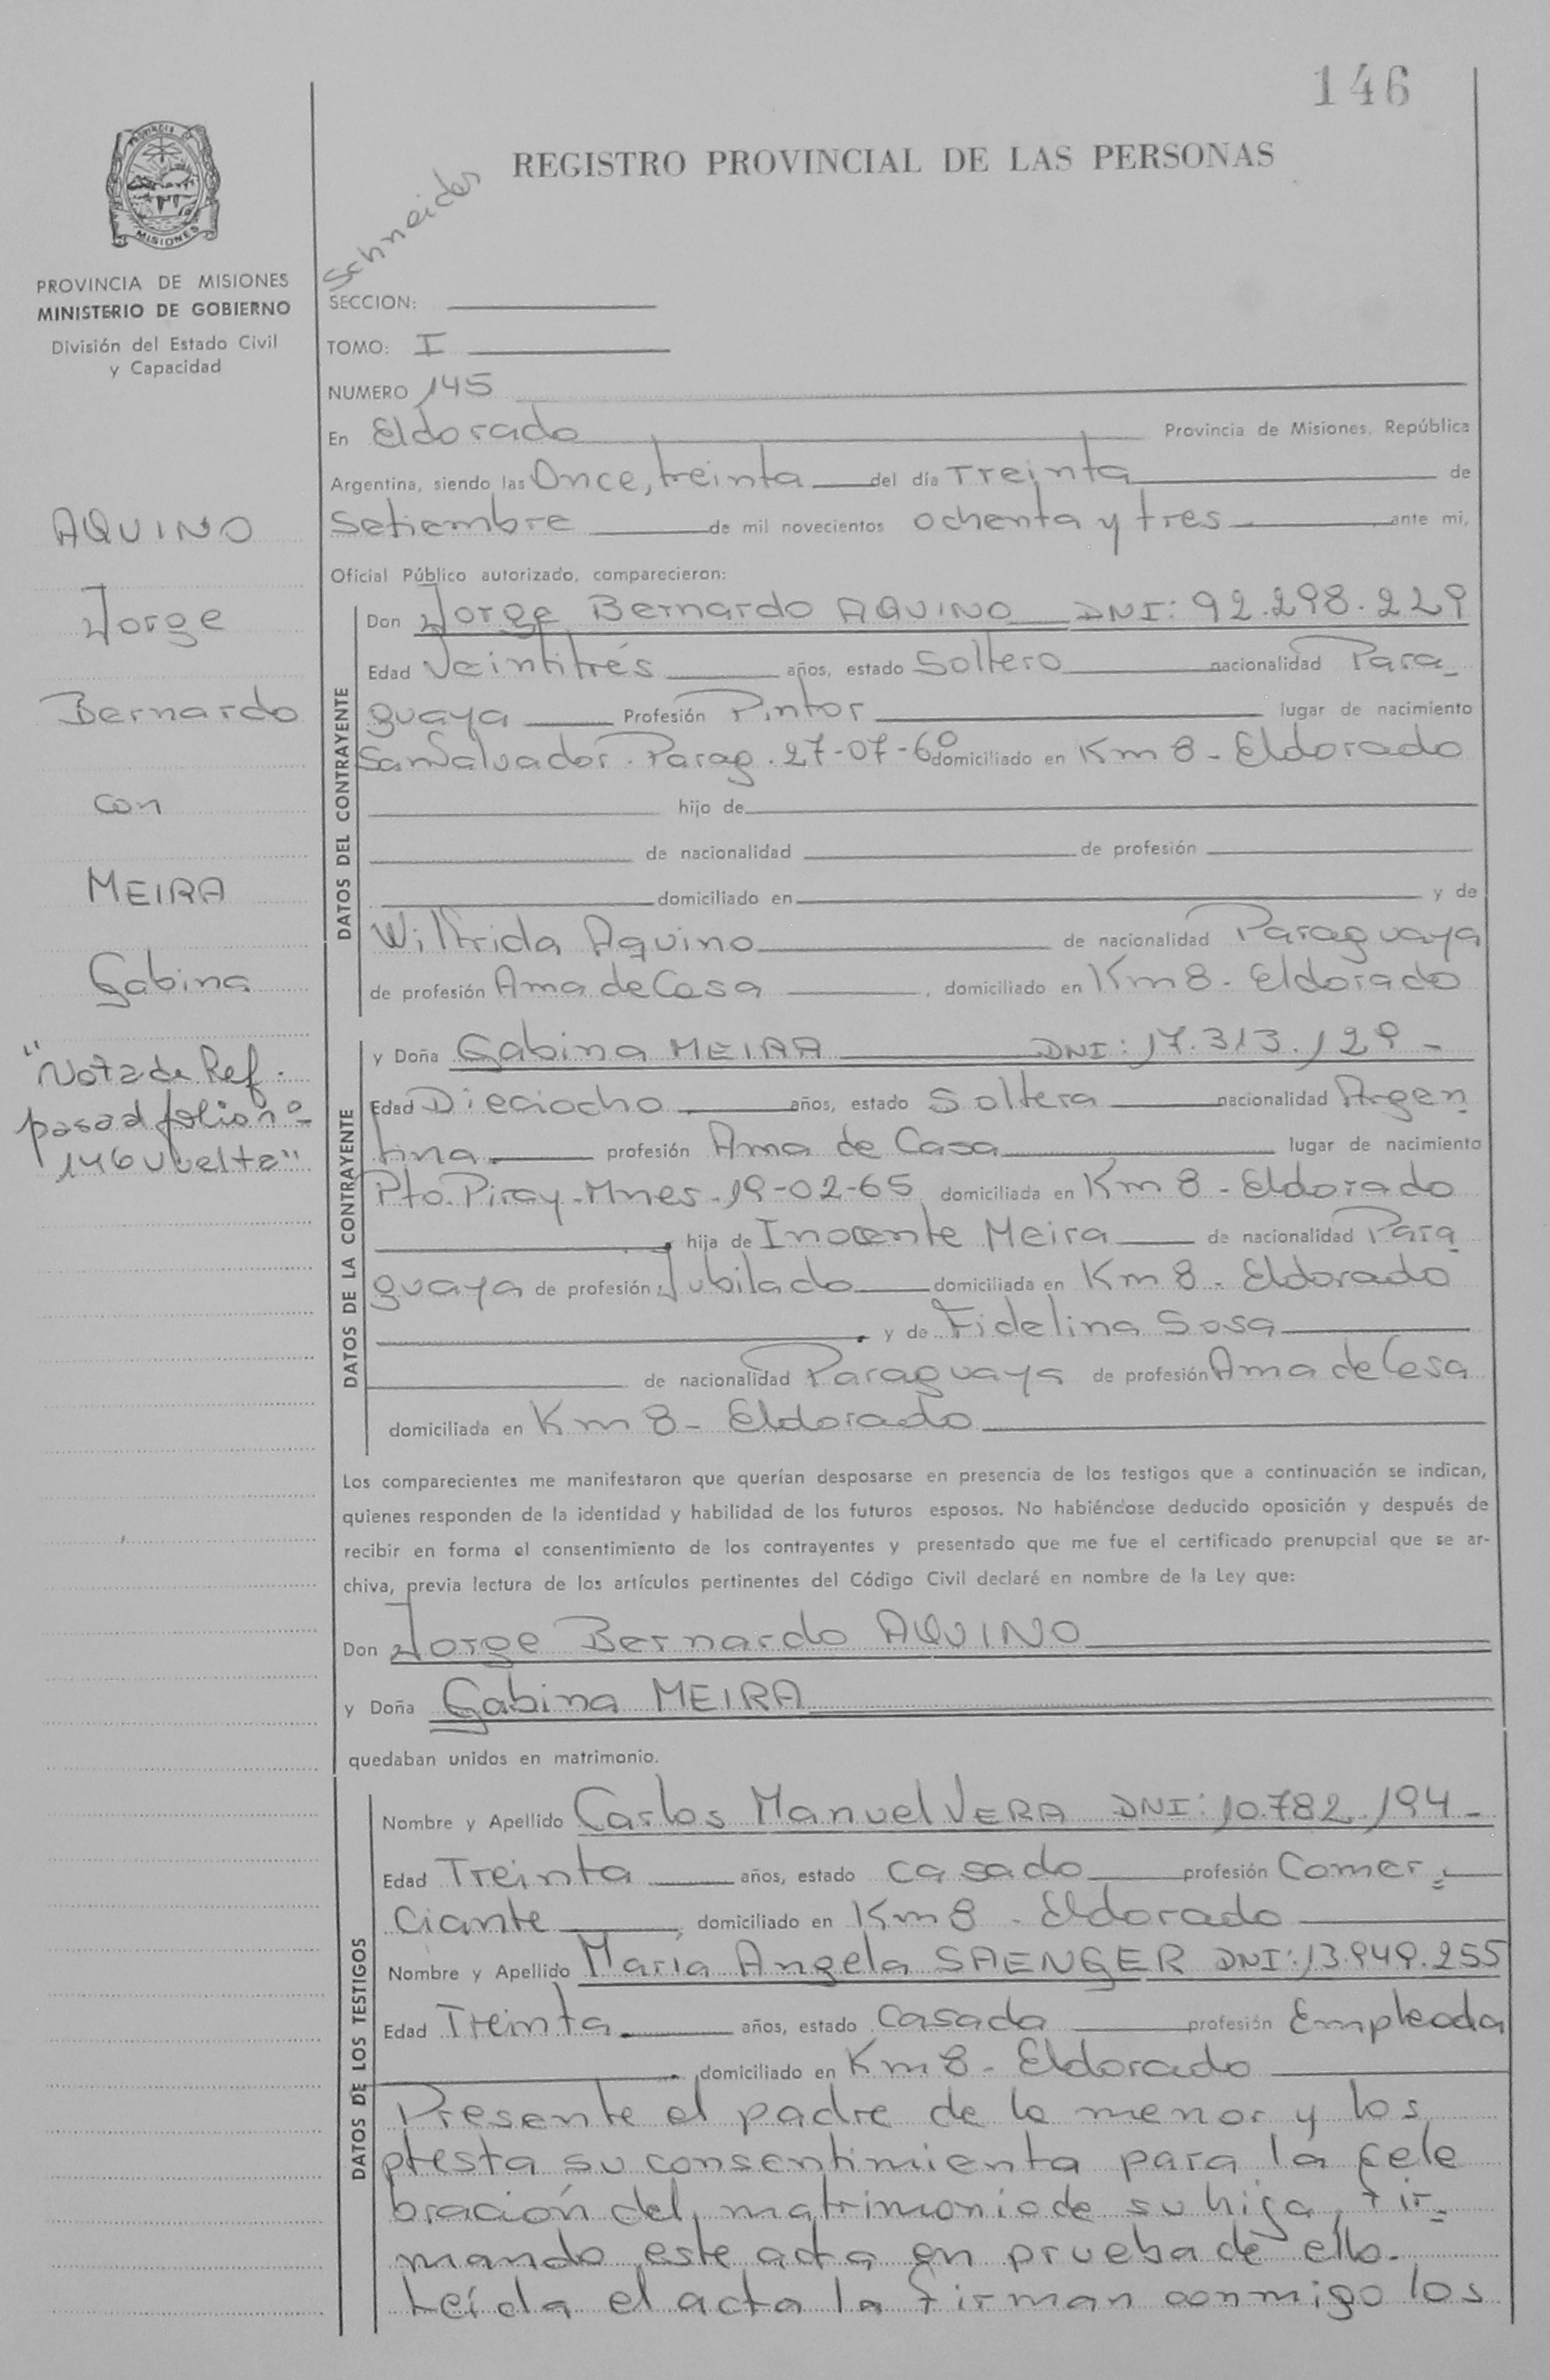 146
REGISTRO PROVINCIAL DE LAS PERSONAS
PROVINCIA DE MISIONES
PROVINCIA DE MISIONES
MINISTERIO DE GOBIERNO
División del Estado Civil
y Capacidad
Schneider
SECCION:
TOMO: I
NUMERO 145
En Eldorado Provincia de Misiones, República
Argentina, siendo las Once, treinta del día Treinta de
Setiembre de mil novecientos ochenta y tres ante mi,
Oficial Público autorizado, comparecieron:
AQUINO
Jorge
Bernardo
con
MEIRA
Gabina
"Nota de Ref.
pasa al folio nº
146 vuelta"
DATOS DEL CONTRAYENTE
Don Jorge Bernardo AQUINO DNI: 92.298.229
Edad Veintitrés años, estado Soltero nacionalidad Para
guaya Profesión Pintor lugar de nacimiento
San Salvador. Parag. 27-07-60 domiciliado en Km 8 - Eldorado
hijo de
de nacionalidad de profesión
domiciliado en y de
Wilfrida Aquino de nacionalidad Paraguaya
de profesión Ama de Casa, domiciliado en Km 8 - Eldorado
DATOS DE LA CONTRAYENTE
y Doña Gabina MEIRA DNI: 17.313.129 -
Edad Dieciocho años, estado Soltera nacionalidad Argen
tina profesión Ama de Casa lugar de nacimiento
Pto. Piray - Mnes - 19-02-65 domiciliada en Km 8 - Eldorado
hija de Inocente Meira de nacionalidad Para
guaya de profesión Jubilado domiciliada en Km 8 - Eldorado
y de Fidelina Sosa
de nacionalidad Paraguaya de profesión Ama de Casa
domiciliada en Km 8 - Eldorado
Los comparecientes me manifestaron que querían desposarse en presencia de los testigos que a continuación se indican,
quienes responden de la identidad y habilidad de los futuros esposos. No habiéndose deducido oposición y después de
recibir en forma el consentimiento de los contrayentes y presentado que me fue el certificado prenupcial que se ar-
chiva, previa lectura de los artículos pertinentes del Código Civil declaré en nombre de la Ley que:
Don Jorge Bernardo AQUINO
y Doña Gabina MEIRA
quedaban unidos en matrimonio.
DATOS DE LOS TESTIGOS
Nombre y Apellido Carlos Manuel VERA DNI: 10.782.194 -
Edad Treinta años, estado casado profesión Comer=
ciante, domiciliado en Km 8 - Eldorado
Nombre y Apellido María Angela SAENGER DNI: 13.949.255
Edad Treinta años, estado casada profesión Empleada
domiciliado en Km 8 - Eldorado
Presente el padre de la menor y los
presta su consentimiento para la cele
bración del matrimonio de su hija, fir=
mando este acta en prueba de ello.
Leída el acta la firman conmigo los